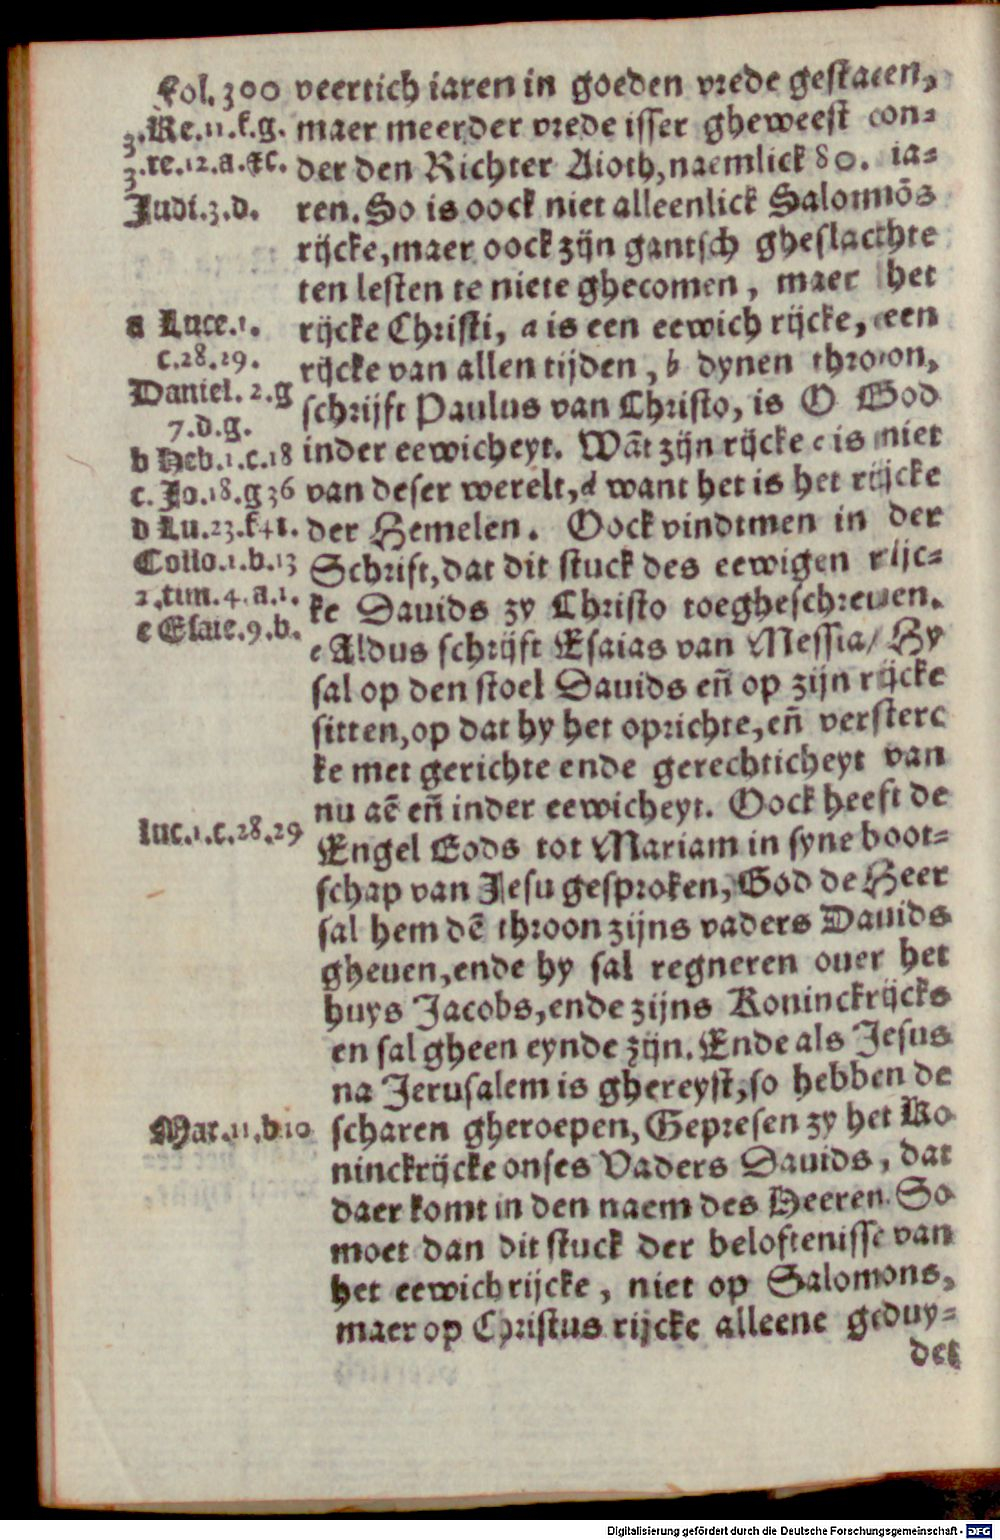 Fol. 300
3.Re.11.f.g.
3.re.12.a.&c.
Judi.3.d.
veertich iaren in goeden vrede gestaeen,
maer meerder vrede isser gheweest con-
der den Richter Aioth, naemlick 80. ia-
ren. So is oock niet alleenlick Salomõs
rijcke, maer oock zijn gantsch gheslacthte
ten lesten te niete ghecomen, maer het
rijcke Christi, a is een eewich rijcke, een
rijcke van allen tijden, b dynen throon,
schrijft Paulus van Christo, is O God
inder eewicheyt. Wãt zijn rijcke c is niet
van deser werelt, d want het is het rijcke
der Hemelen. Oock vindtmen in der
Schrift, dat dit stuck des eewigen rijc-
ke Dauids zy Christo toegheschreuen.
e Aldus schrijft Esaias van Messia/ Hy
sal op den stoel Dauids eñ op zijn rijcke
sitten, op dat hy het oprichte, eñ versterc
ke met gerichte ende gerechticheyt van
nu aẽ eñ inder eewicheyt. Oock heeft de
Engel Gods tot Mariam in syne boot-
schap van Jesu gesproken, God de Heer
sal hem dẽ throon zijns vaders Dauids
gheuen, ende hy sal regneren ouer het
huys Jacobs, ende zijns Koninckrijcks
en sal gheen eynde zijn. Ende als Jesus
na Jerusalem is ghereyst, so hebben de
scharen gheroepen, Gepresen zy het Ko
ninckrijcke onses Vaders Dauids, dat
daer komt in den naem des Heeren. So
moet dan dit stuck der beloftenisse van
het eewich rijcke, niet op Salomons,
maer op Christus rijcke alleene geduy-
det
a Luce.1.
c.28.29.
Daniel.2.g
7.d.g.
b Heb.1.c.18
c. Jo.18.g 36
d Lu.23.f.41.
Collo.1.b.13
2.tim.4.a.1.
e Esaie.9.b.
luc.1.c.28.29
Mar.11.b.10
Digitalisierung gefördert durch die Deutsche Forschungsgemeinschaft - DFG